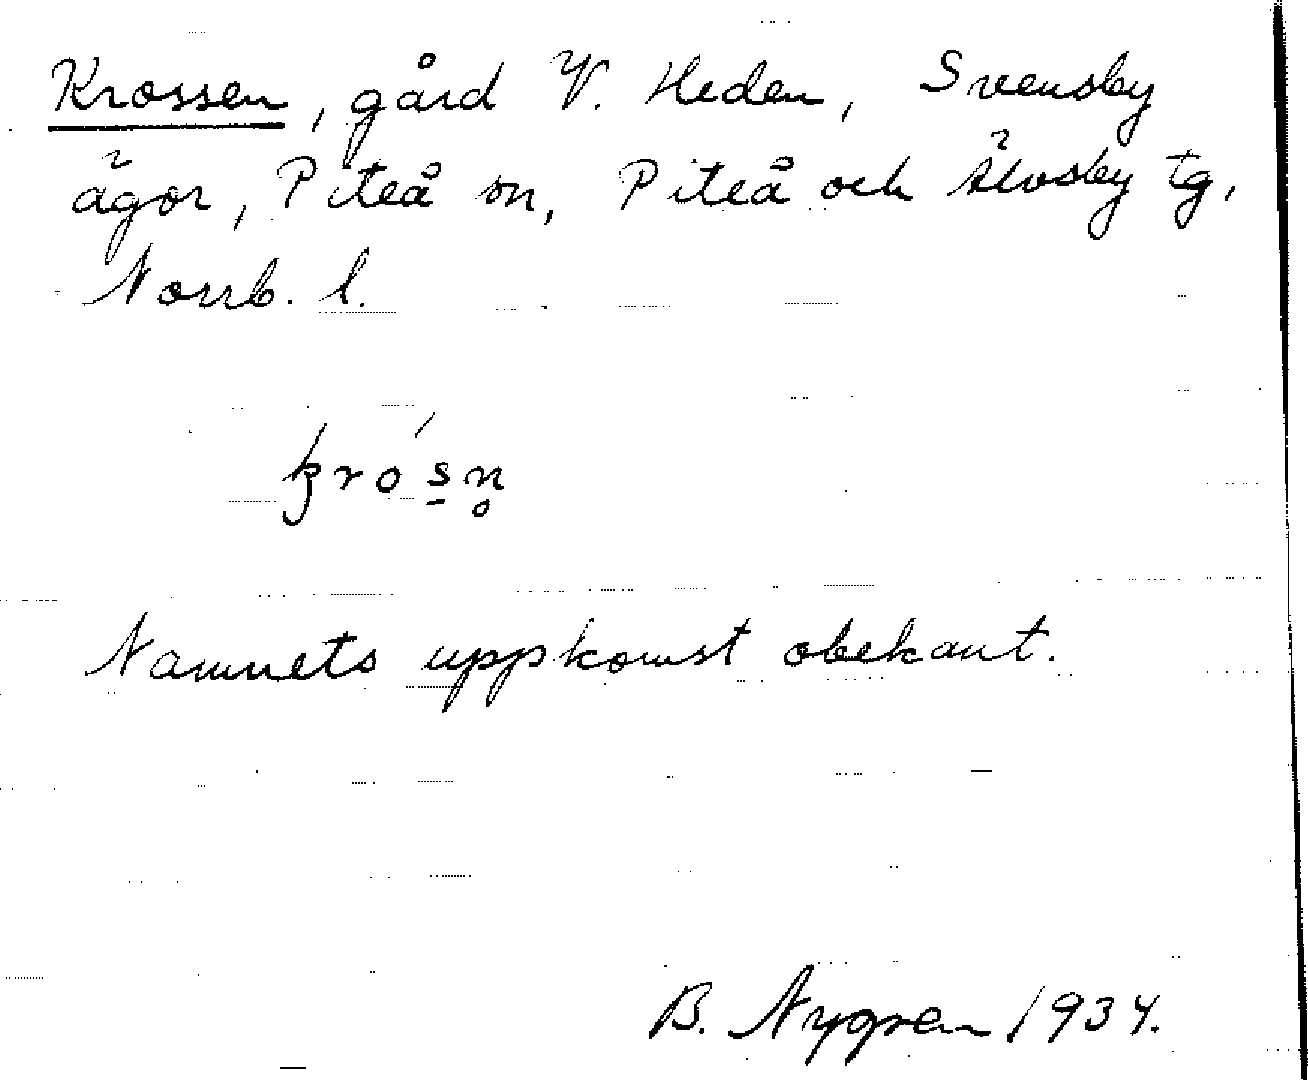 Krossen, gård V. Heden, Svensby
ägor, Piteå sn, Piteå och Älvsby tg,
Norrb. l.
krós̠n̥
Namnets uppkomst obekant.
B. Nygren 1934.